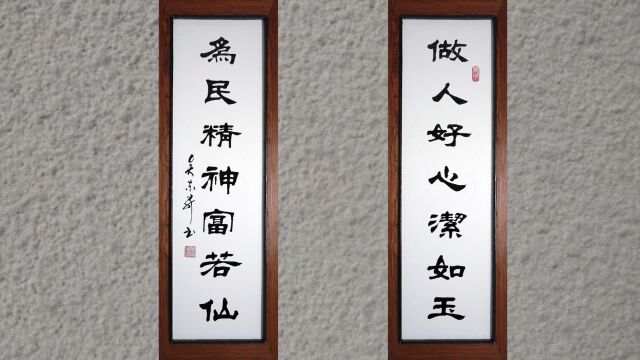 做人好心潔如玉
為民精神富若仙